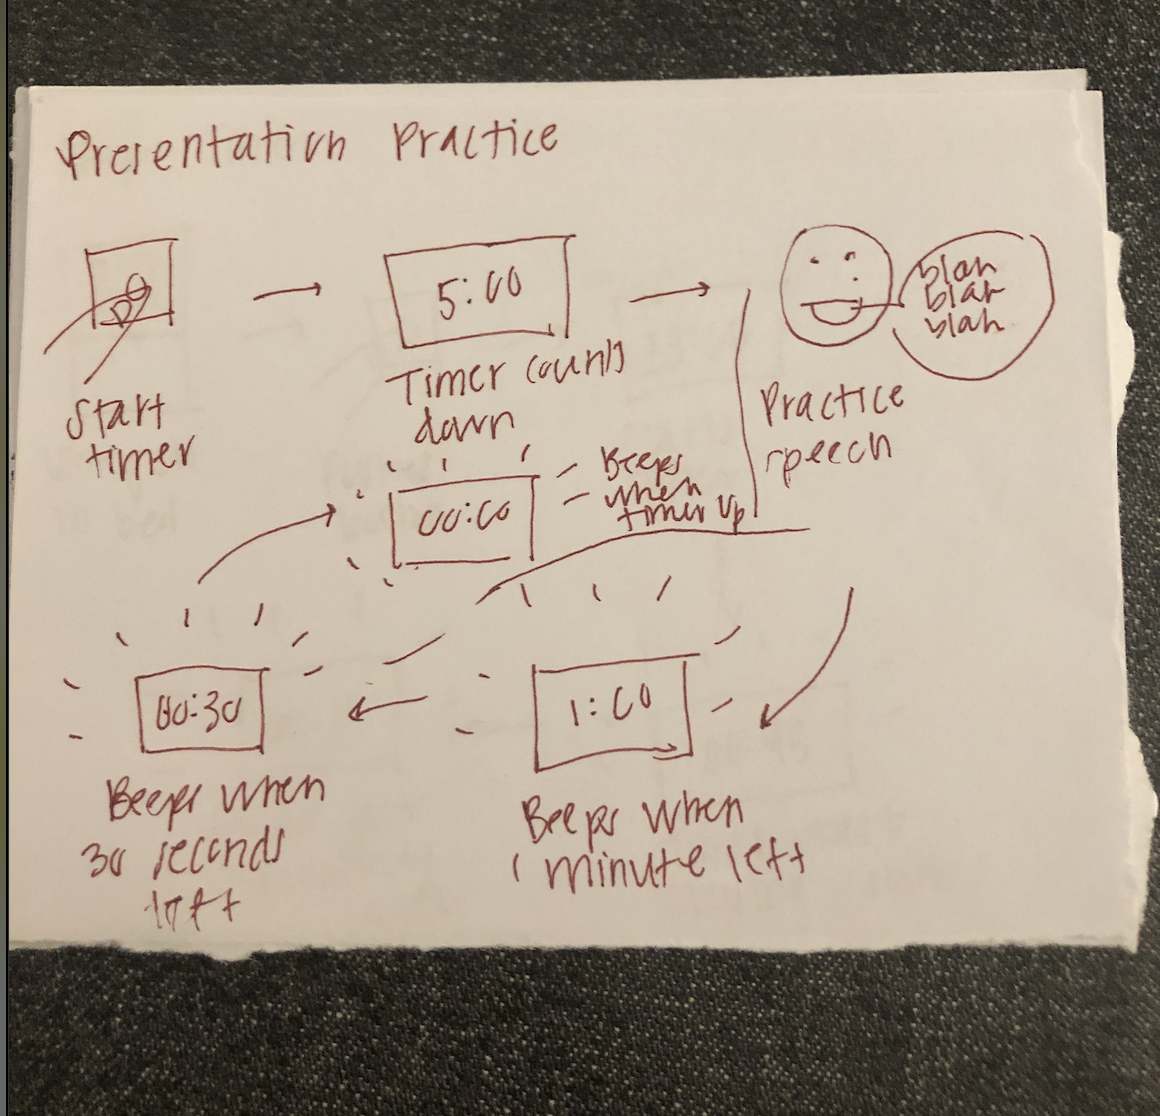 Presentation Practice
Start
timer
5:00
Timer counts
down
blah
blah
blah
Practice
speech
1:00
Beeps when
1 minute left
00:30
Beeps when
30 seconds
left
00:00
Beeps
when
timer up